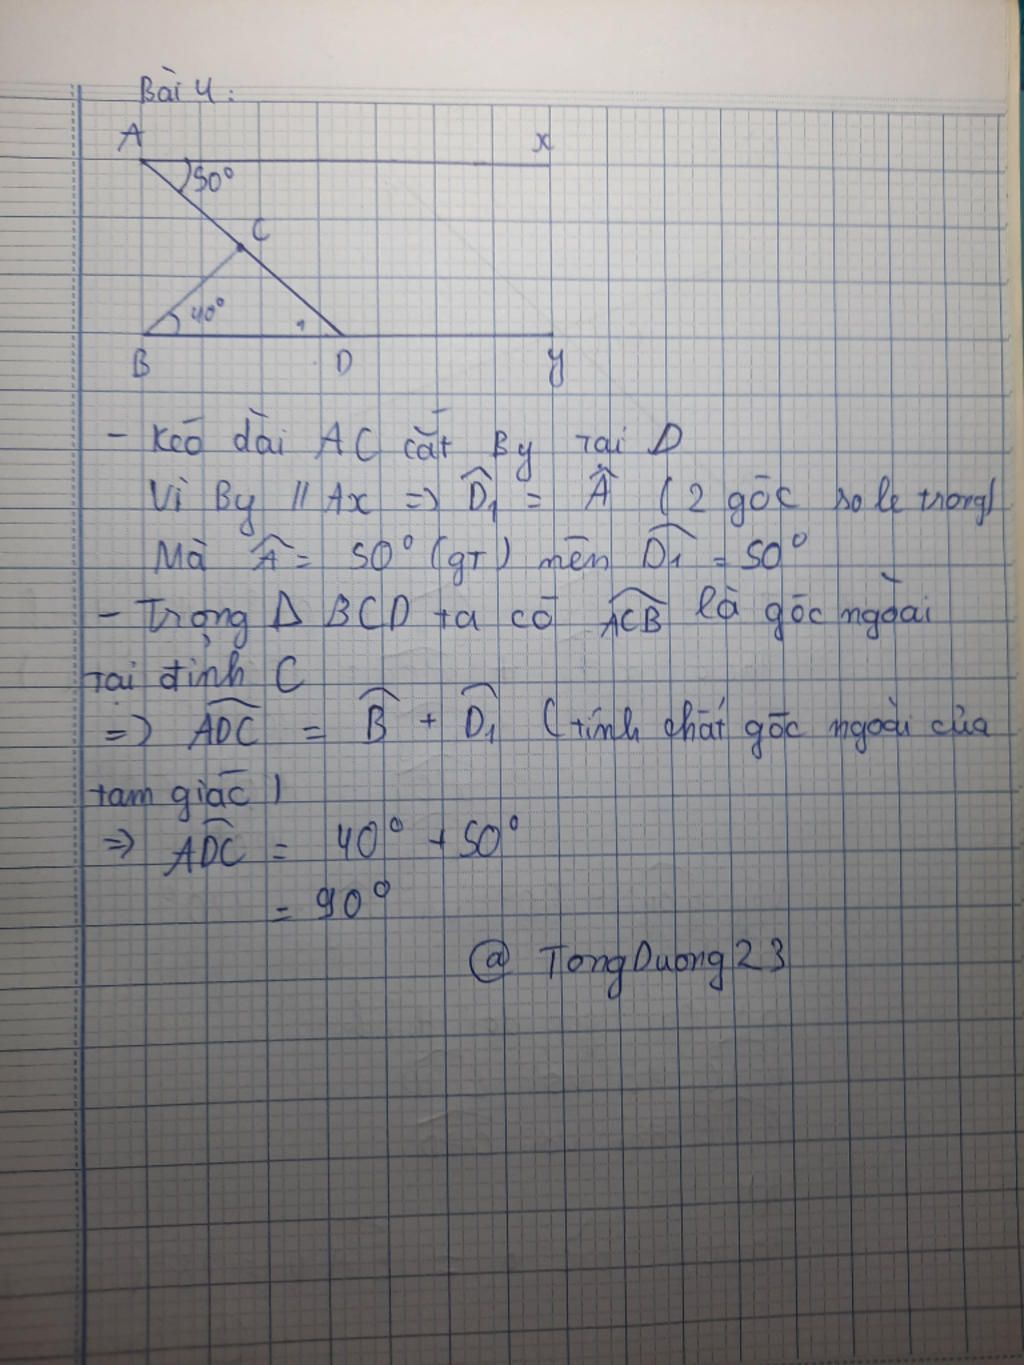 Bài 4:
A x
50°
C
40°
1
B D y
- Kéo dài AC cắt By tại D
Vì By // Ax => D̂₁ = Â ( 2 góc so le trong)
Mà Â = 50° (gT) nên D̂₁ = 50°
- Trong Δ BCD ta có ACB̂ là góc ngoài
tại đỉnh C
=> ADĈ = B̂ + D̂₁ ( tính chất góc ngoài của
tam giác )
=> ADĈ = 40° + 50°
= 90°
@ TongDuong23